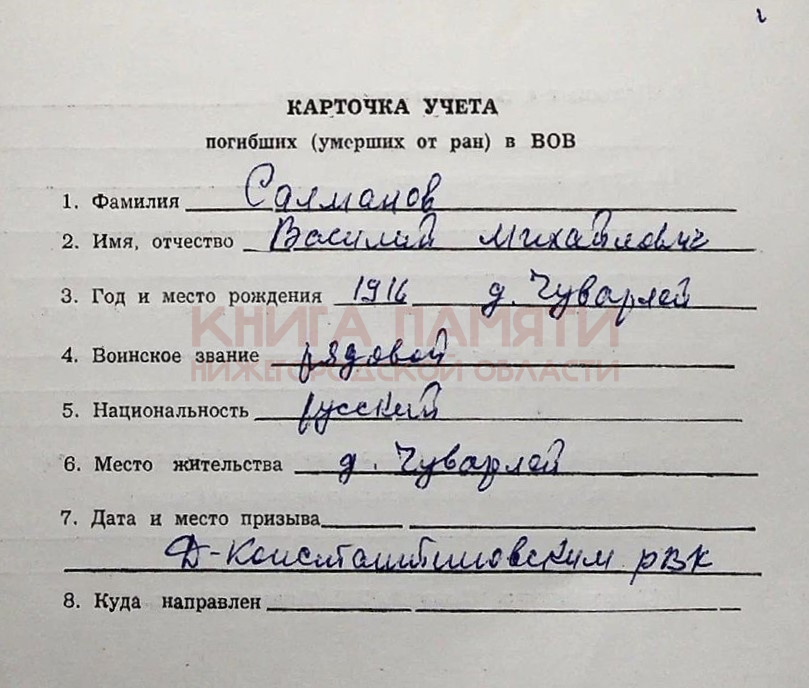 КАРТОЧКА УЧЕТА
погибших (умерших от ран) в ВОВ
1. Фамилия Салманов
2. Имя, отчество Василий Михайлович
3. Год и место рождения 1916 д. Чуварлей
КНИГА ПАМЯТИ
4. Воинское звание рядовой
НИЖЕГОРОДСКОЙ ОБЛАСТИ
5. Национальность русский
6. Место жительства д. Чуварлей
7. Дата и место призыва
Д-Константиновским РВК
8. Куда направлен